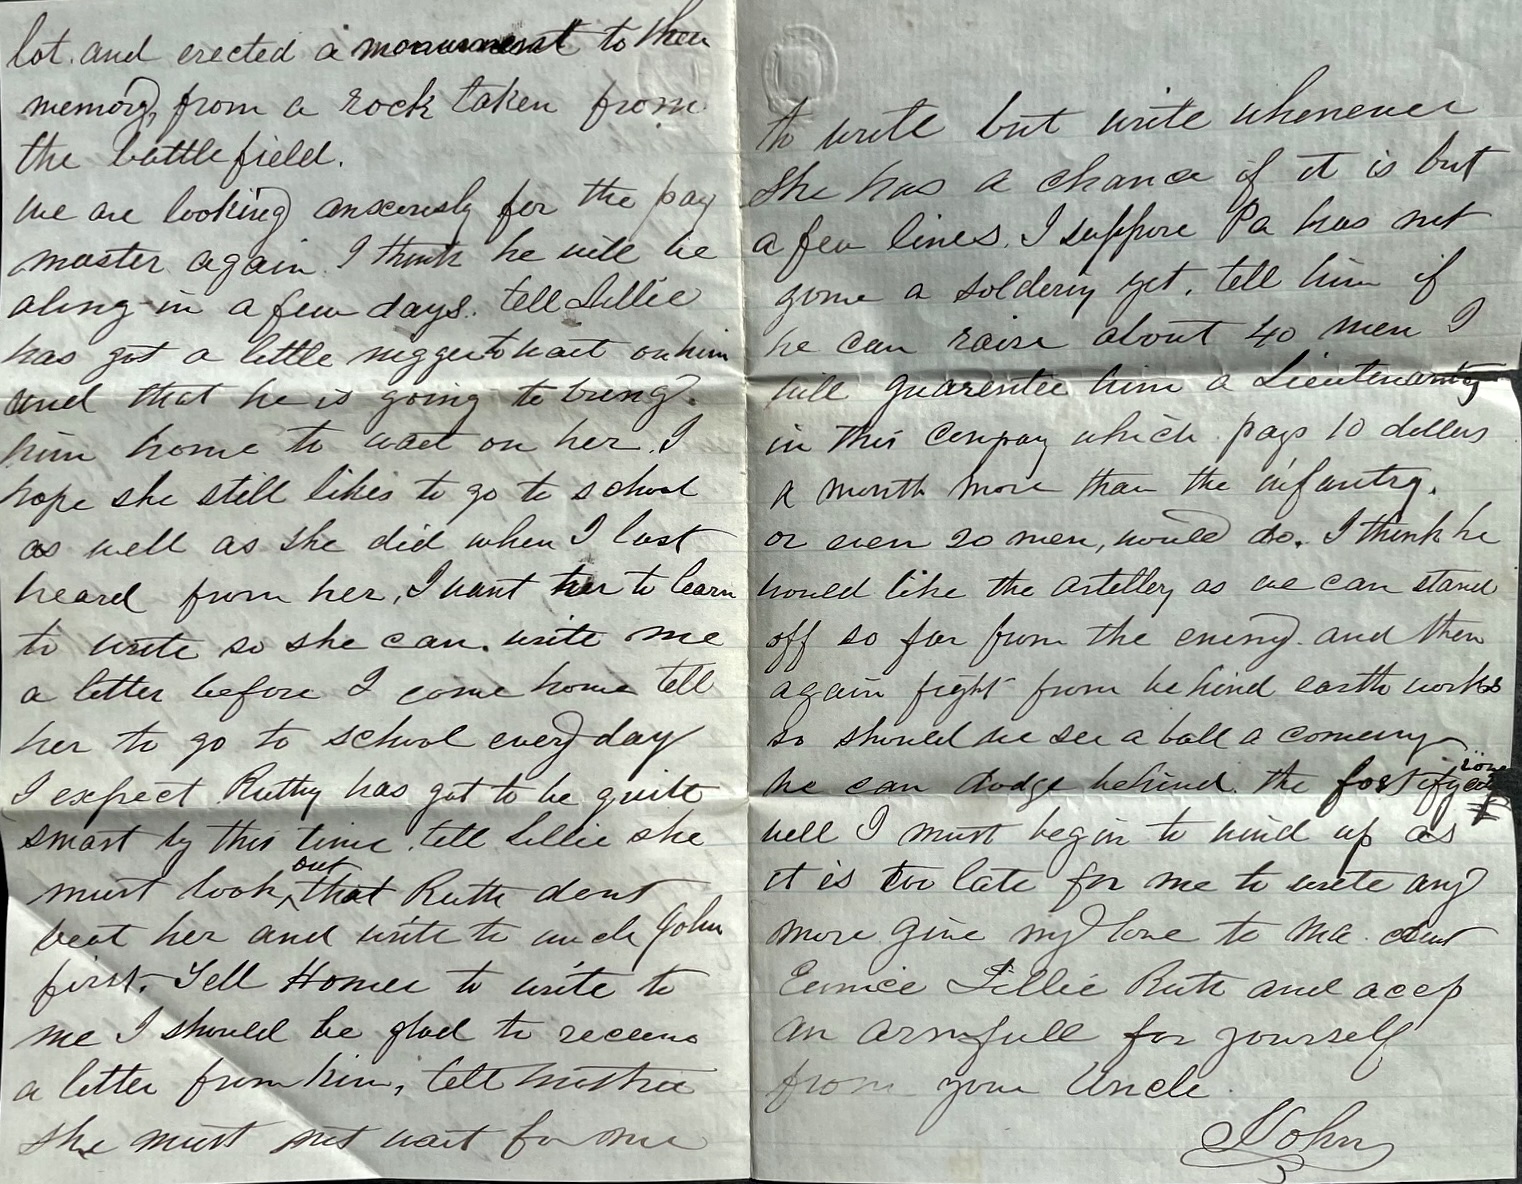 lot. and erected a monument to their
memory, from a rock taken from
the battle field.
we are looking anxcously for the pay
master again. I think he will be
along in a few days. tell Lillie
has got a little nigger to wait on him
and that he is going to bring
him home to wait on her. I
hope she still likes to go to school
as well as she did when I last
heard from her, I want her to learn
to write so she can write me
a letter before I come home tell
her to go to school every day
I expect Ruthy has got to be quite
smart by this time. tell Lillie she
must look out that Ruth dont
beat her and write to uncle John
first. Tell Homer to write to
me I should be glad to receive
a letter from him, tell
she must not wait for me
to write but write whenever
she has a chance if it is but
a few lines. I suppose Pa has not
gone a soldering yet. tell him if
he can raise about 40 men I
will guarentee him a Lieutenantcy
in this Company which pays 10 dollars
a month more than the infantry.
or even 20 men, would do. I think he
would like the artillery as we can stand
off so far from the enemy. and then
again fight from behind earth works
so should we see a ball a comeing
we can dodge behind the
well I must begin to wind up as
it is too late for me to write any
more give my love to Ma Aunt
Eunice Lillie Ruth and accep
an armfull for yourself
from your Uncle.
John